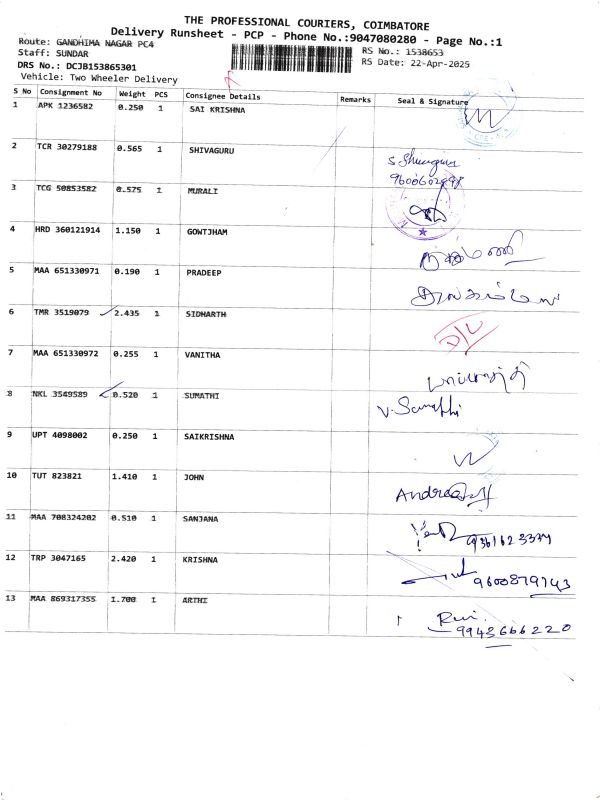 THE PROFESSIONAL COURIERS, COIMBATORE
Delivery Runsheet - PCP - Phone No.:9047080280 - Page No.:1
Route: GANDHIMA NAGAR PC4
Staff: SUNDAR
DRS No.: DCJB153865301
Vehicle: Two Wheeler Delivery
RS No.: 1538653
RS Date: 22-Apr-2025
S No Consignment No Weight PCS Consignee Details Remarks Seal & Signature
1 APK 1236582 0.250 1 SAI KRISHNA
2 TCR 30279188 0.565 1 SHIVAGURU
9600602998
3 TCG 50853582 0.575 1 MURALI
4 HRD 360121914 1.150 1 GOWTJHAM
5 MAA 651330971 0.190 1 PRADEEP
6 TMR 3519079 2.435 1 SIDHARTH
7 MAA 651330972 0.255 1 VANITHA
8 NKL 3549589 0.520 1 SUMATHI V. Sumathi
9 UPT 4098002 0.250 1 SAIKRISHNA
10 TUT 823821 1.410 1 JOHN
11 MAA 708324202 0.510 1 SANJANA
12 TRP 3047165 2.420 1 KRISHNA 9600879743
13 MAA 869317355 1.700 1 ARTHI
9943666220